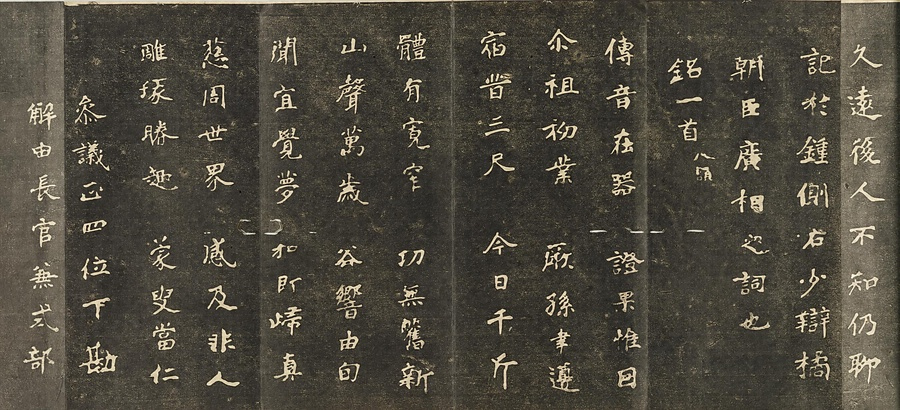 久遠後人不知仍聊
記於鍾側右少辯橘
朝臣廣相之詞也
銘一首八韻
傳音在器 證果惟因
尒祖初業 厥孫聿遵
宿昔三尺 今日千斤
體有寛窄 功無舊新
山聲萬歳 谷響由旬
聞宜覺夢 扣即歸真
慈周世界 感及非人
雕琢勝趣 蒙叟當仁
叅議正四位下勘
解由長官兼式部